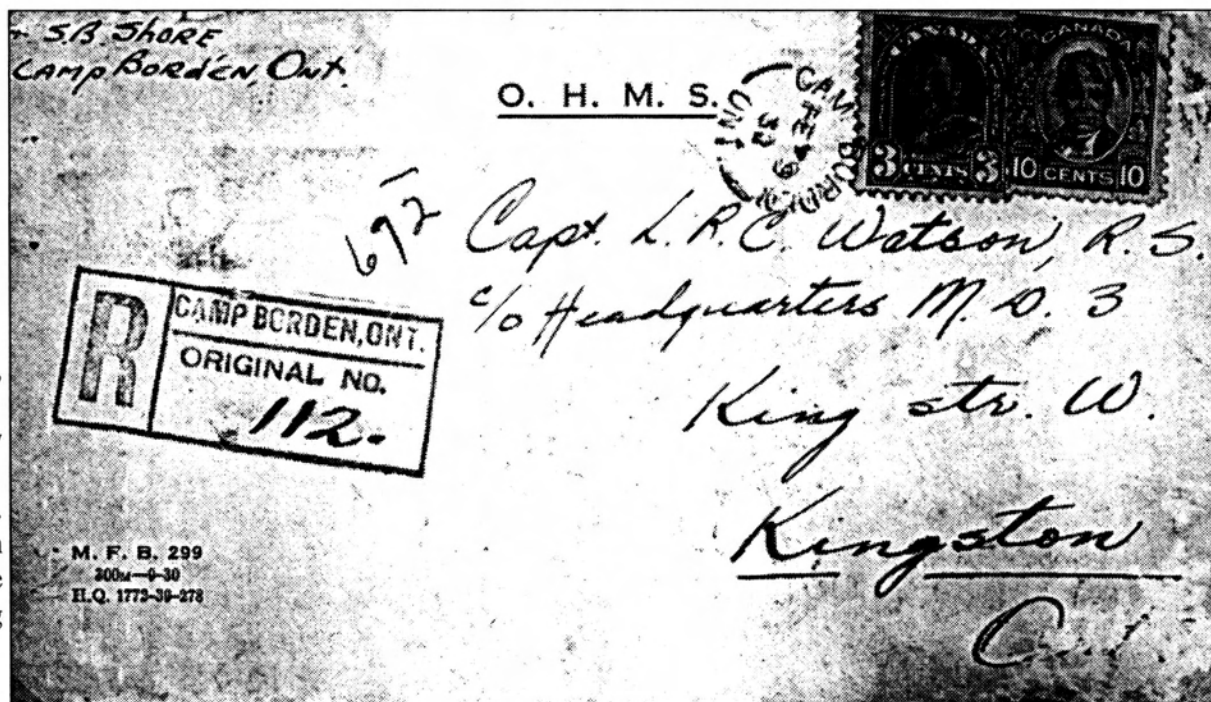 S.B. SHORE
CAMP BORDEN, ONT.
O. H. M. S.
CAMP BORDEN
FE 9
32
ONT
CANADA
3 CENTS 3
CANADA
10 CENTS 10
692
Capt. L. R. C. Watson, R. S.
c/o Headquarters M. D. 3
King str. W.
Kingston
R
CAMP BORDEN, ONT.
ORIGINAL NO.
112.
M. F. B. 299
300M—9-30
H.Q. 1772-39-278